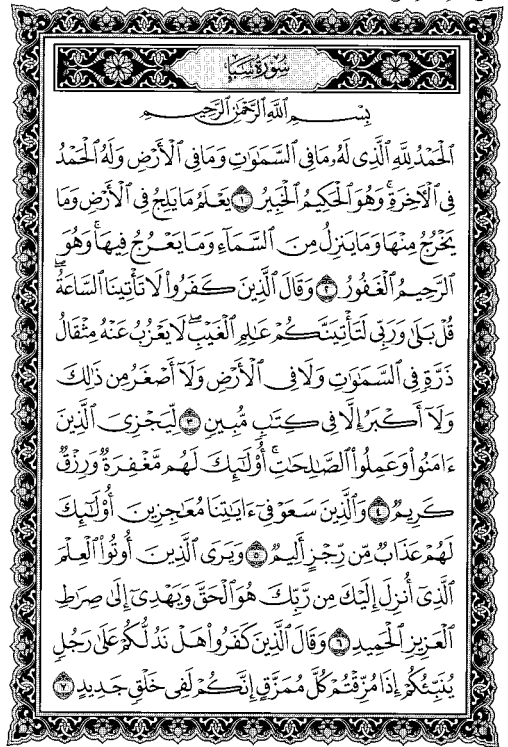 سُورَةُ سَبَإٍ
بِسْمِ ٱللَّهِ ٱلرَّحْمَٰنِ ٱلرَّحِيمِ
ٱلْحَمْدُ لِلَّهِ ٱلَّذِى لَهُۥ مَا فِى ٱلسَّمَٰوَٰتِ وَمَا فِى ٱلْأَرْضِ وَلَهُ ٱلْحَمْدُ
فِى ٱلْأٓخِرَةِ ۚ وَهُوَ ٱلْحَكِيمُ ٱلْخَبِيرُ ١ يَعْلَمُ مَا يَلِجُ فِى ٱلْأَرْضِ وَمَا
يَخْرُجُ مِنْهَا وَمَا يَنزِلُ مِنَ ٱلسَّمَآءِ وَمَا يَعْرُجُ فِيهَا ۚ وَهُوَ
ٱلرَّحِيمُ ٱلْغَفُورُ ٢ وَقَالَ ٱلَّذِينَ كَفَرُوا۟ لَا تَأْتِينَا ٱلسَّاعَةُ ۖ
قُلْ بَلَىٰ وَرَبِّى لَتَأْتِيَنَّكُمْ عَٰلِمِ ٱلْغَيْبِ ۖ لَا يَعْزُبُ عَنْهُ مِثْقَالُ
ذَرَّةٍ فِى ٱلسَّمَٰوَٰتِ وَلَا فِى ٱلْأَرْضِ وَلَآ أَصْغَرُ مِن ذَٰلِكَ
وَلَآ أَكْبَرُ إِلَّا فِى كِتَٰبٍ مُّبِينٍ ٣ لِّيَجْزِىَ ٱلَّذِينَ
ءَامَنُوا۟ وَعَمِلُوا۟ ٱلصَّٰلِحَٰتِ ۚ أُو۟لَٰٓئِكَ لَهُم مَّغْفِرَةٌ وَرِزْقٌ
كَرِيمٌ ٤ وَٱلَّذِينَ سَعَوْ فِىٓ ءَايَٰتِنَا مُعَٰجِزِينَ أُو۟لَٰٓئِكَ
لَهُمْ عَذَابٌ مِّن رِّجْزٍ أَلِيمٌ ٥ وَيَرَى ٱلَّذِينَ أُوتُوا۟ ٱلْعِلْمَ
ٱلَّذِىٓ أُنزِلَ إِلَيْكَ مِن رَّبِّكَ هُوَ ٱلْحَقَّ وَيَهْدِىٓ إِلَىٰ صِرَٰطِ
ٱلْعَزِيزِ ٱلْحَمِيدِ ٦ وَقَالَ ٱلَّذِينَ كَفَرُوا۟ هَلْ نَدُلُّكُمْ عَلَىٰ رَجُلٍ
يُنَبِّئُكُمْ إِذَا مُزِّقْتُمْ كُلَّ مُمَزَّقٍ إِنَّكُمْ لَفِى خَلْقٍ جَدِيدٍ ٧